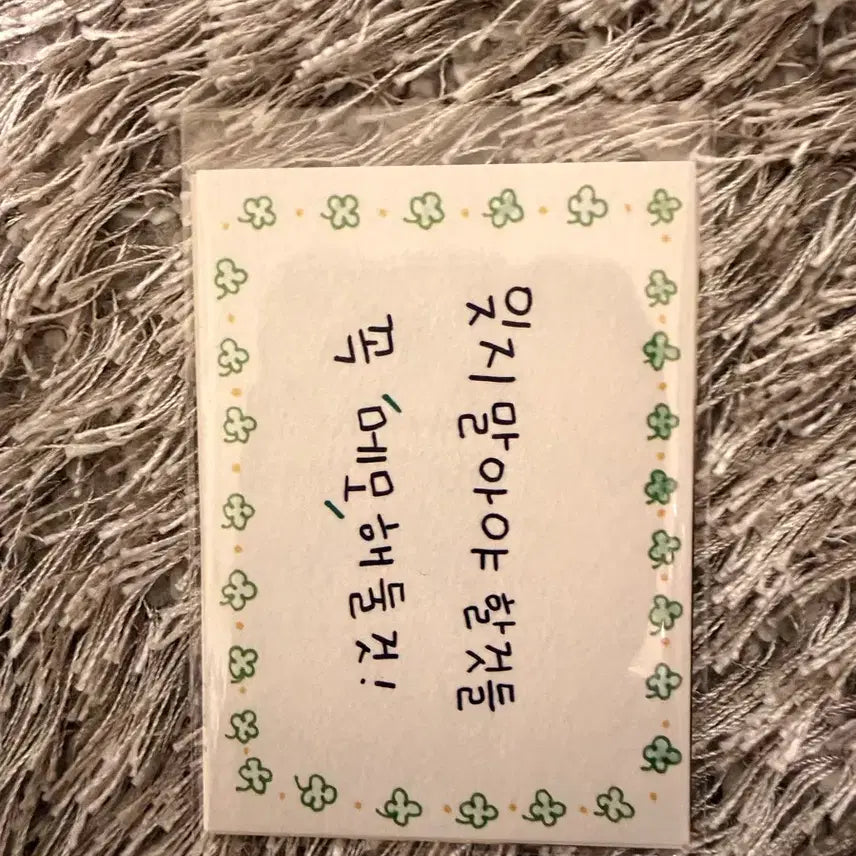 잊지말아야 할것들
꼭 '메모'해둘것!